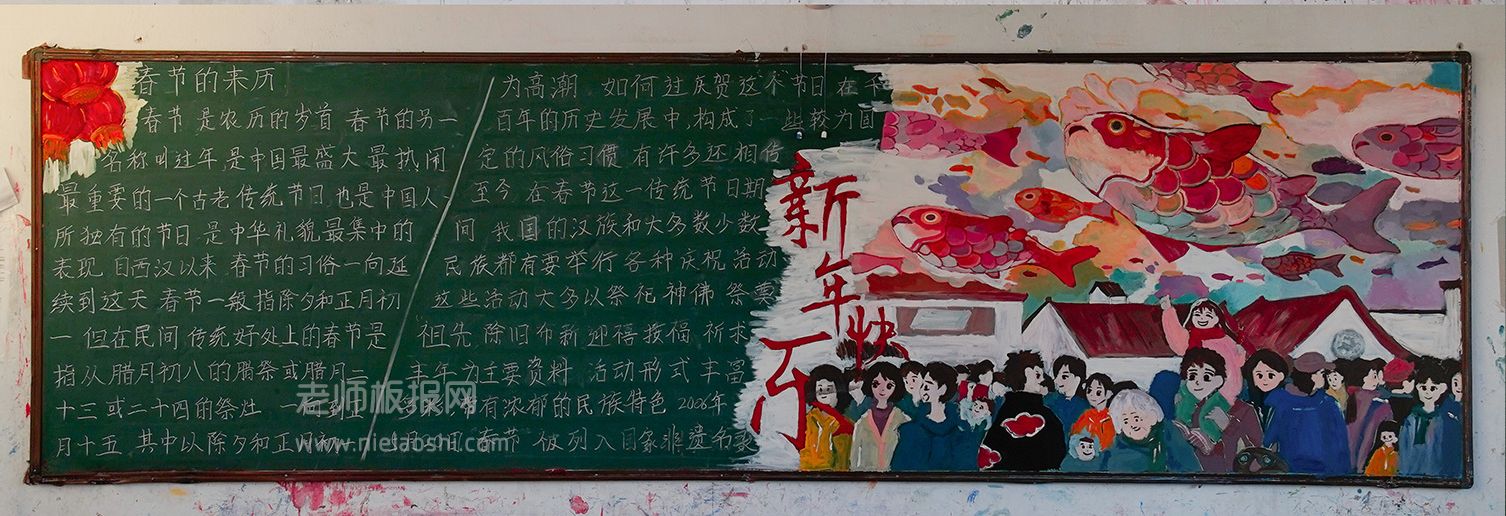 春节的来历
春节 是农历的岁首 春节的另一
名称叫过年,是中国最盛大 最热闹
最重要的一个古老传统节日,也是中国人
所独有的节日.是中华礼貌最集中的
表现.自西汉以来.春节的习俗一向延
续到这天 春节一般指除夕和正月初
一 但在民间 传统好处上的春节是
指从腊月初八的腊祭或腊月二
十三或二十四的祭灶 一向到正
月十五 其中以除夕和正月初一
为高潮 如何过庆贺这个节日 在千
百年的历史发展中,构成了一些较为固
定的风俗习惯 有许多还相传
至今 在春节这一传统节日期
间 我国的汉族和大多数少数
民族都有要举行各种庆祝活动
这些活动大多以祭祀神佛 祭奠
祖先 除旧布新 迎禧接福 祈求
丰年为主要资料 活动形式丰富
有浓郁的民族特色 2006年
日 春节 被列入国家非遗名录
新年快乐
老师板报网
www.nielaoshi.com